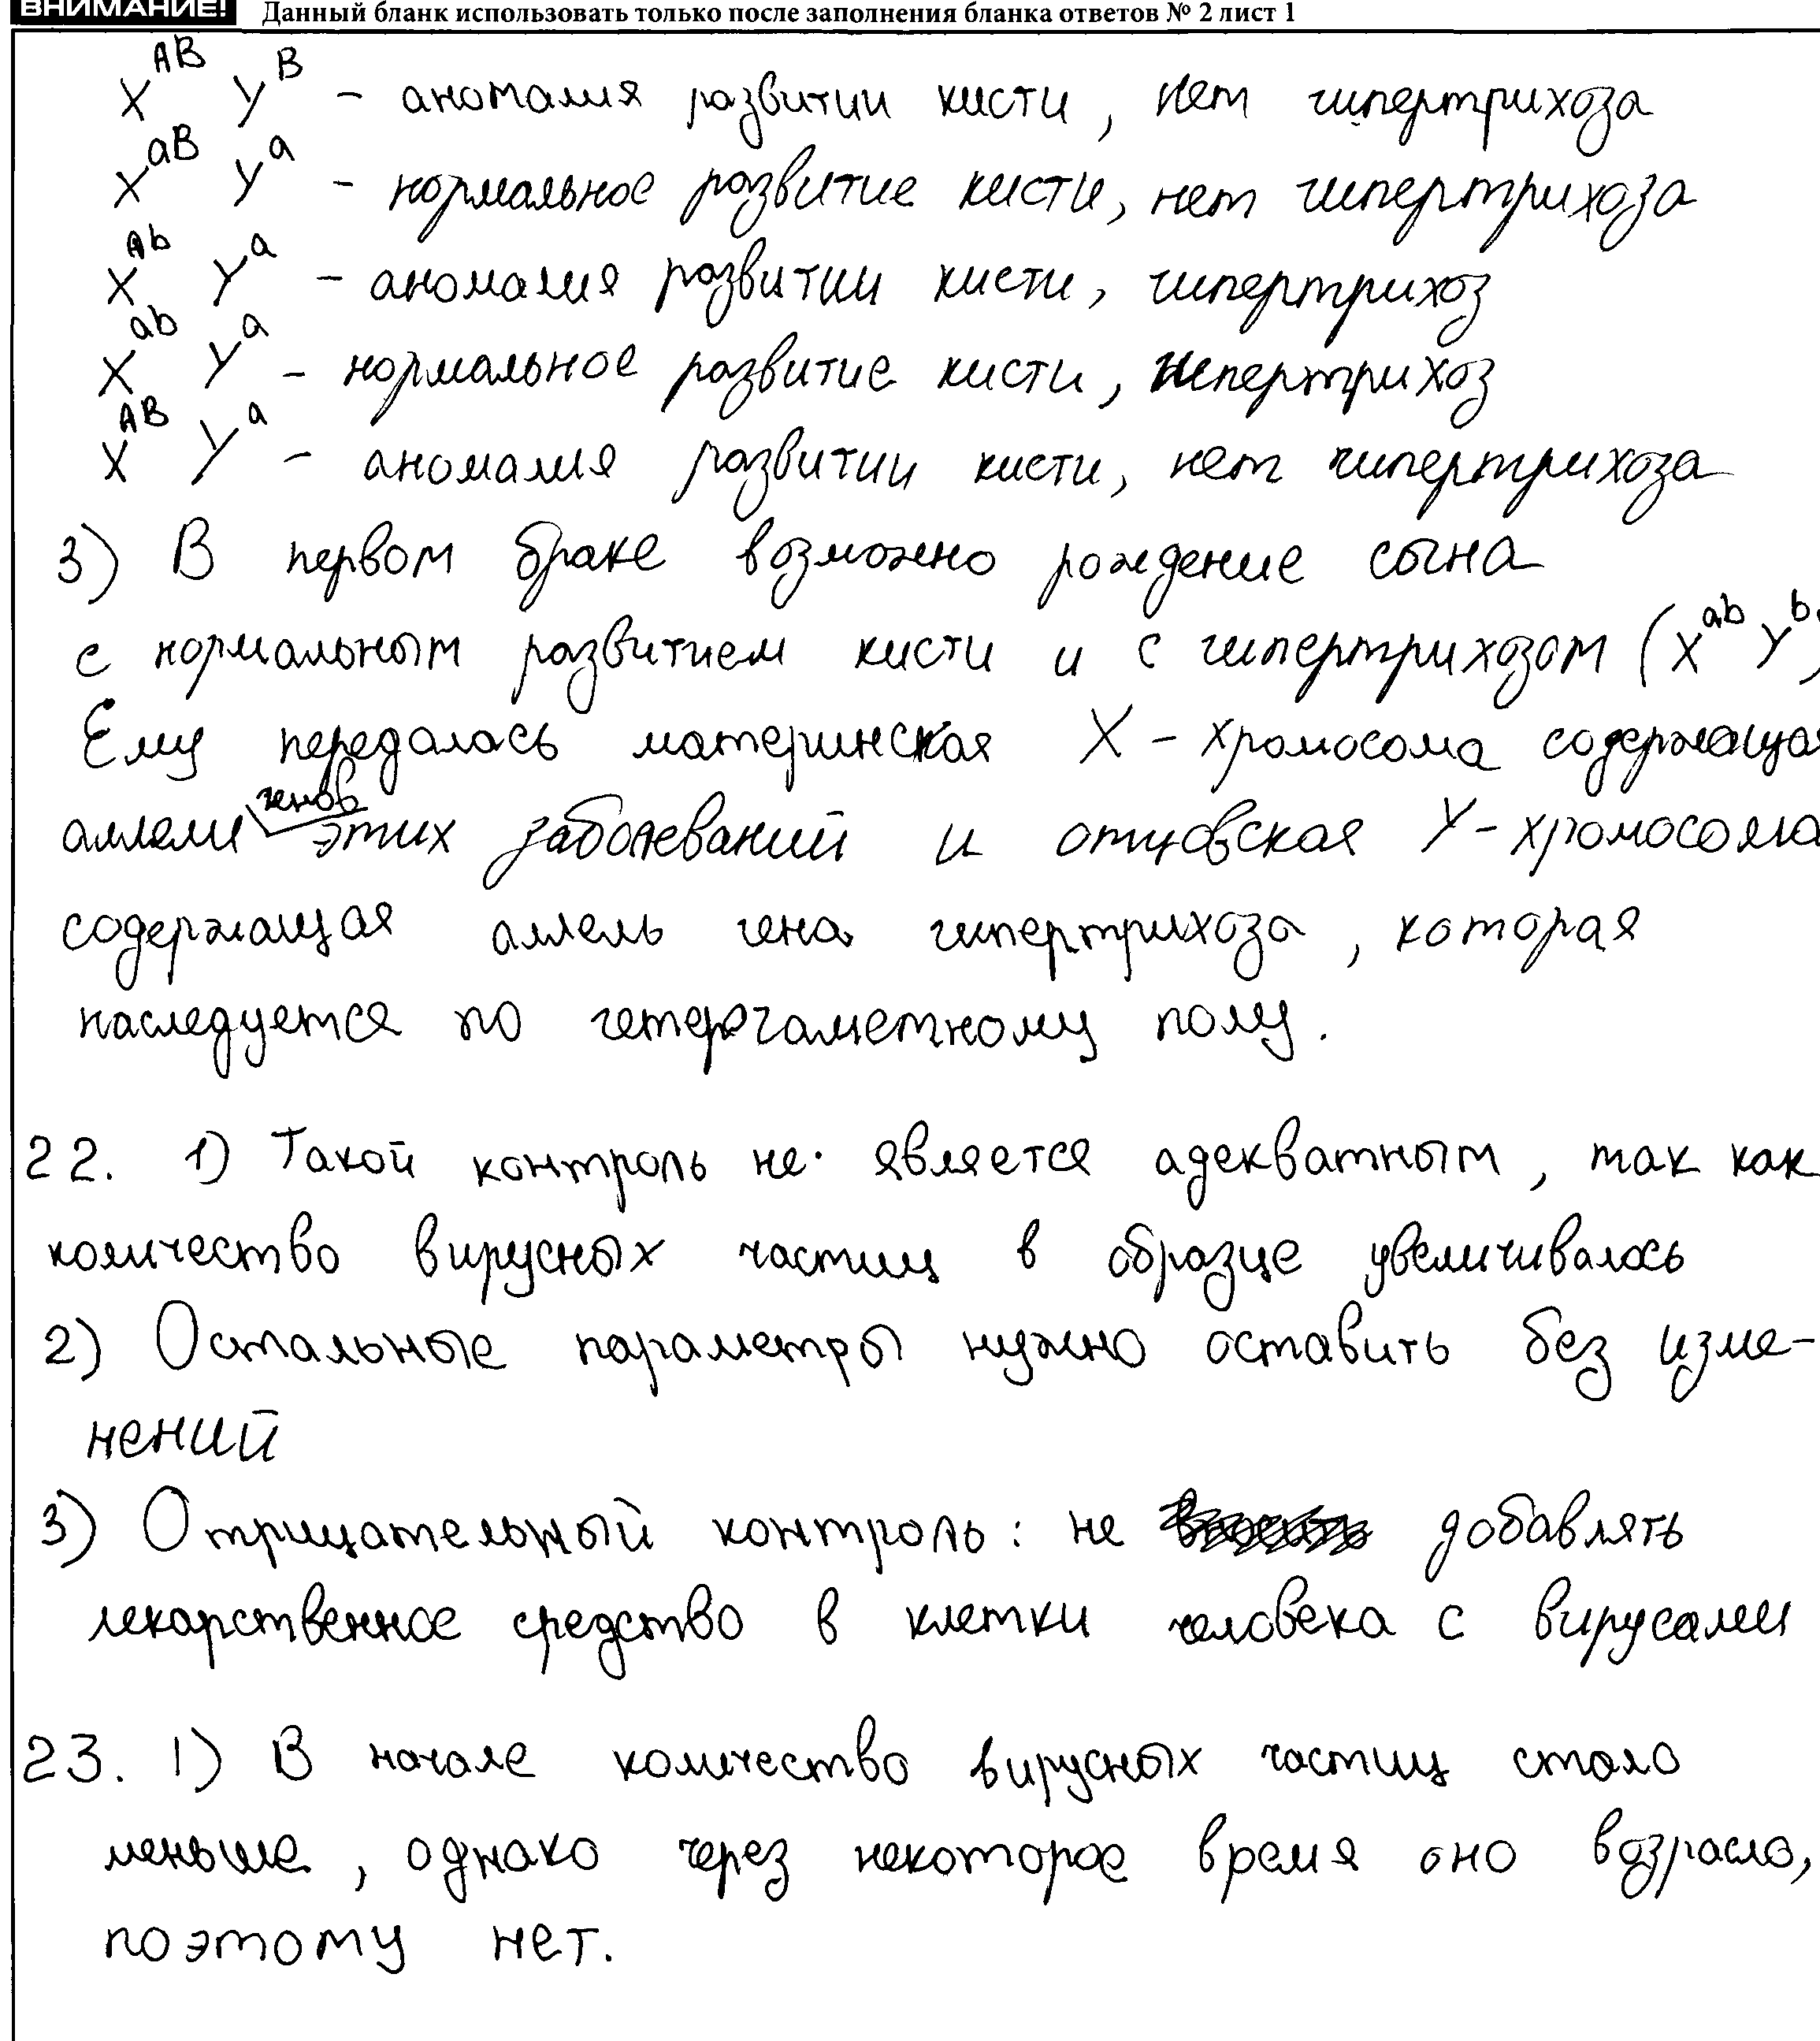 ВНИМАНИЕ! Данный бланк использовать только после заполнения бланка ответов № 2 лист 1
X^AB Y^B – аномалия развитии кисти, нет гипертрихоза
X^aB Y^a – нормальное развитие кисти, нет гипертрихоза
X^Ab Y^a – аномалия развитии кисти, гипертрихоз
X^ab Y^a – нормальное развитие кисти, гипертрихоз
X^AB Y^a – аномалия развитии кисти, нет гипертрихоза
3) В первом браке возможно рождение сына
с нормальным развитием кисти и с гипертрихозом (X^ab Y^b)
Ему передалась материнская X – хромосома содержащая
аллели генов этих заболеваний и отцовская Y – хромосома
содержащая аллель гена гипертрихоза, которая
наследуется по гетерогаметному полу.
22. 1) Такой контроль не является адекватным, так как
количество вирусных частиц в образце увеличивалось
2) Остальные параметры нужно оставить без изме-
нений
3) Отрицательный контроль: не добавлять
лекарственное средство в клетки человека с вирусами
23. 1) В начале количество вирусных частиц стало
меньше, однако через некоторое время оно возрасло,
поэтому нет.